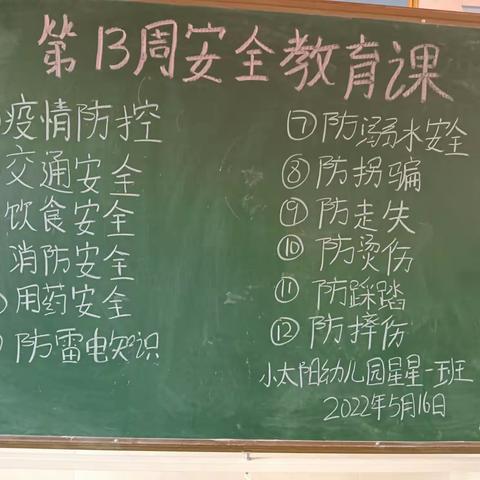 第13周安全教育课
疫情防控
交通安全
饮食安全
消防安全
用药安全
防雷电知识
⑦防溺水安全
⑧防拐骗
⑨防走失
⑩防烫伤
⑪防踩踏
⑫防摔伤
小太阳幼儿园星星一班
2022年5月16日